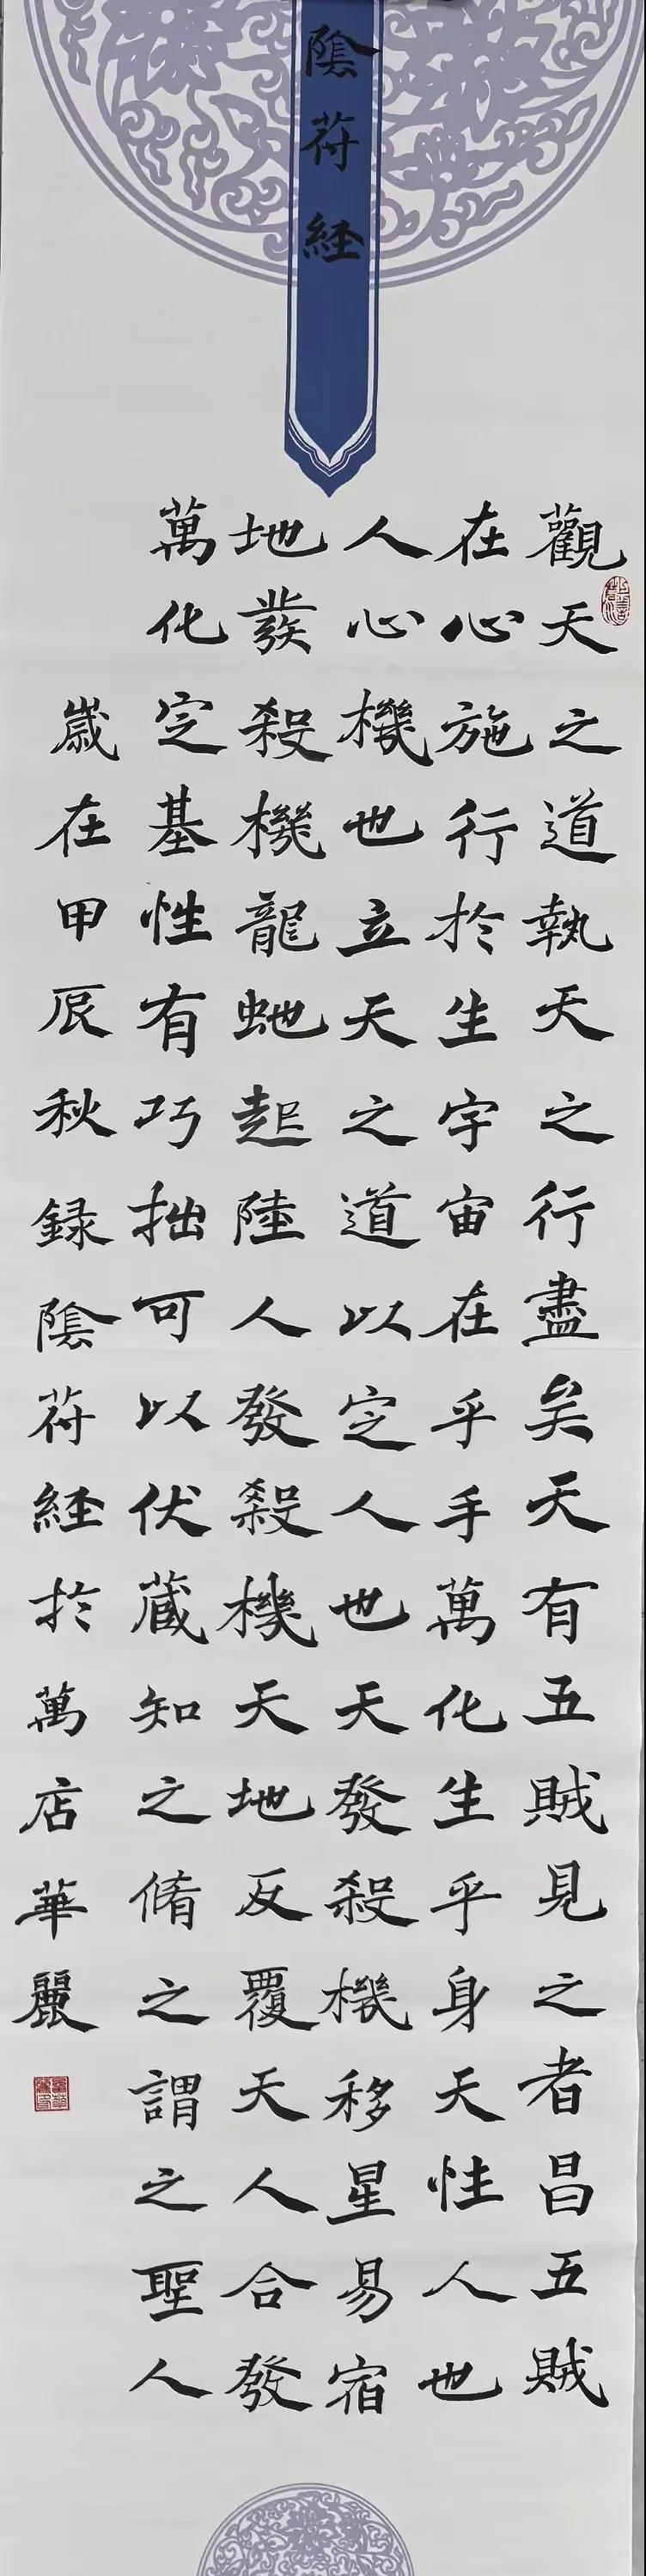 陰符経
觀天之道執天之行盡矣天有五賊見之者昌五賊
在心施行於生宇宙在乎手萬化生乎身天性人也
人心機也立天之道以定人也天發殺機移星易宿
地發殺機龍虵起陸人發殺機天地反覆天人合發
萬化定基性有巧拙可以伏蔵知之脩之謂之聖人
歲在甲辰秋録陰符経於萬店華麗